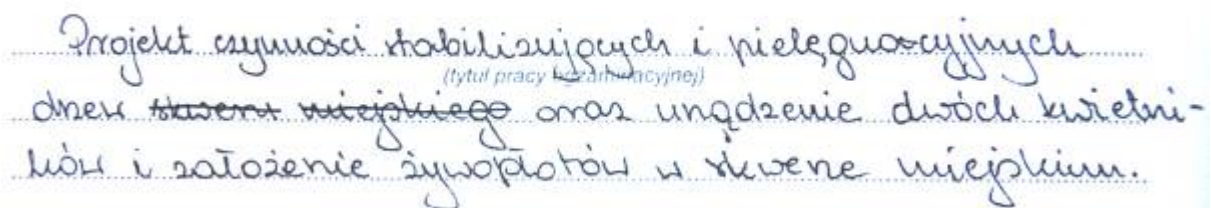 Projekt czynności stabilizujących i pielęgnacyjnych
(tytuł pracy egzaminacyjnej)
drzew skweru miejskiego oraz urządzenie dwóch kwietni-
ków i założenie żywopłotów w skwerze miejskim.